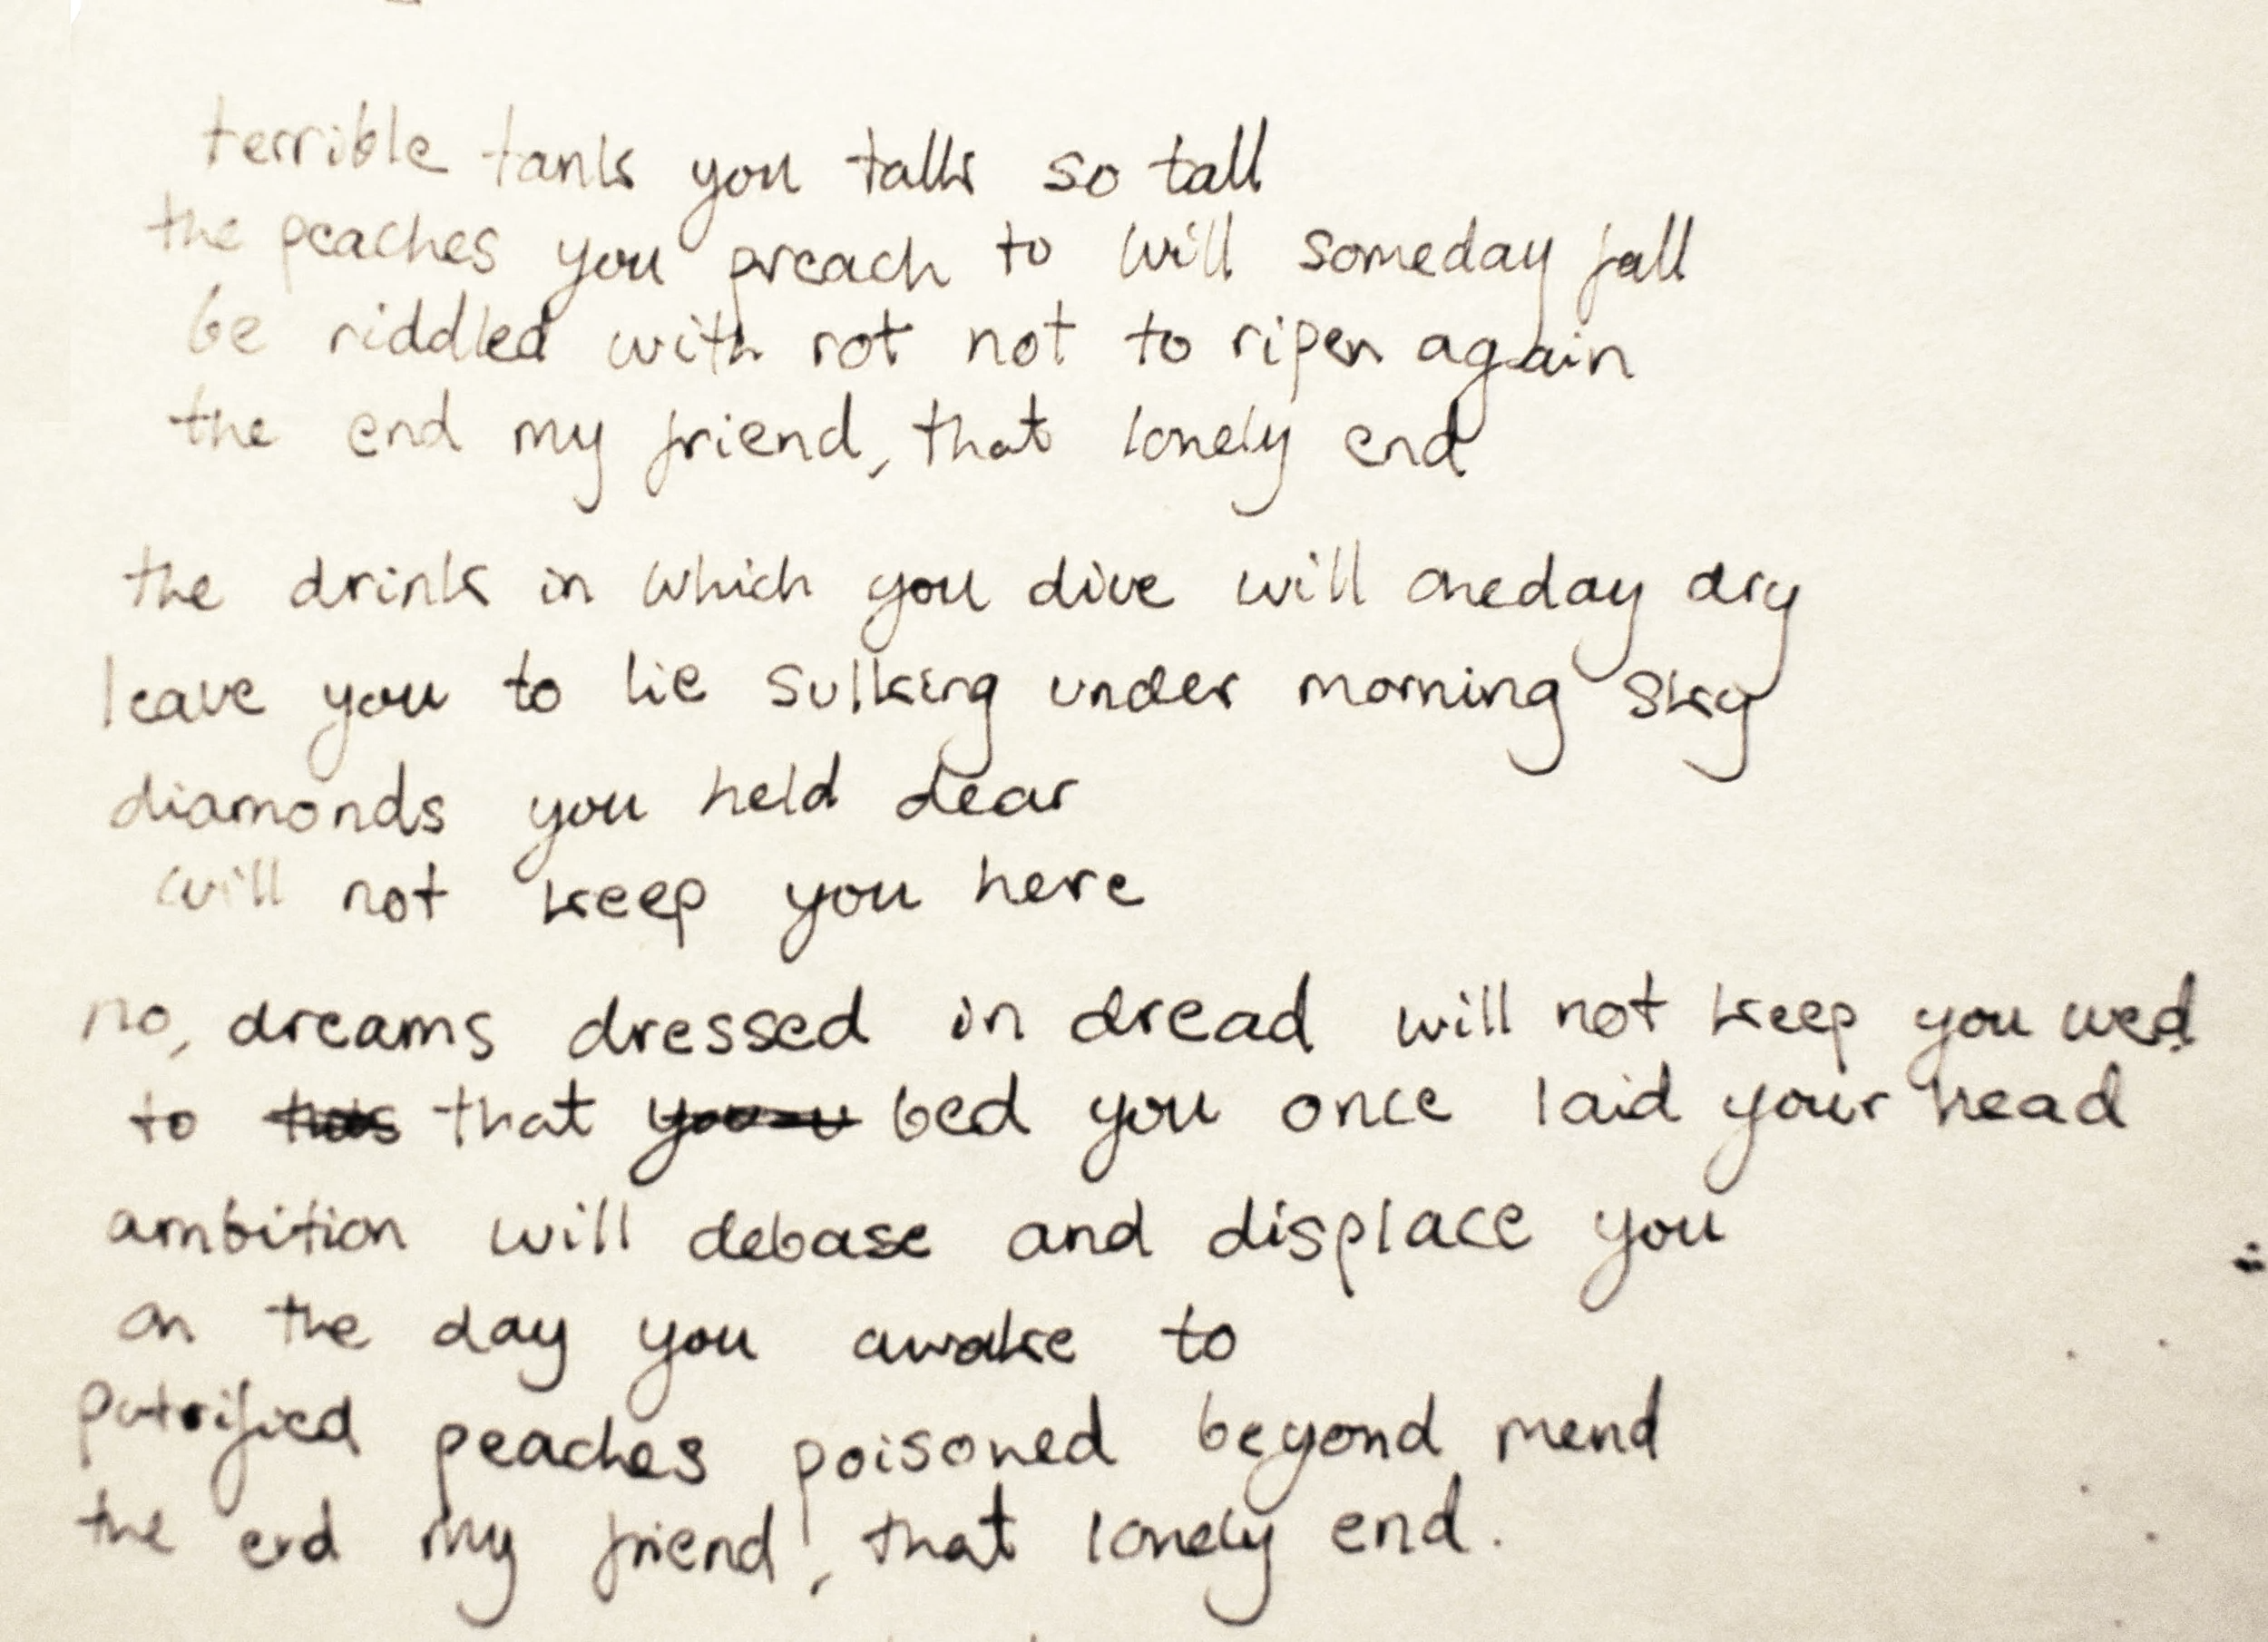 terrible tank you talk so tall
the peaches you preach to will someday fall
be riddled with rot not to ripen again
the end my friend, that lonely end
the drink in which you dive will oneday dry
leave you to lie sulking under morning sky
diamonds you held dear
will not keep you here
no, dreams dressed in dread will not keep you wed
to that bed you once laid your head
ambition will debase and displace you
on the day you awake to
putrified peaches poisoned beyond mend
the end my friend, that lonely end.